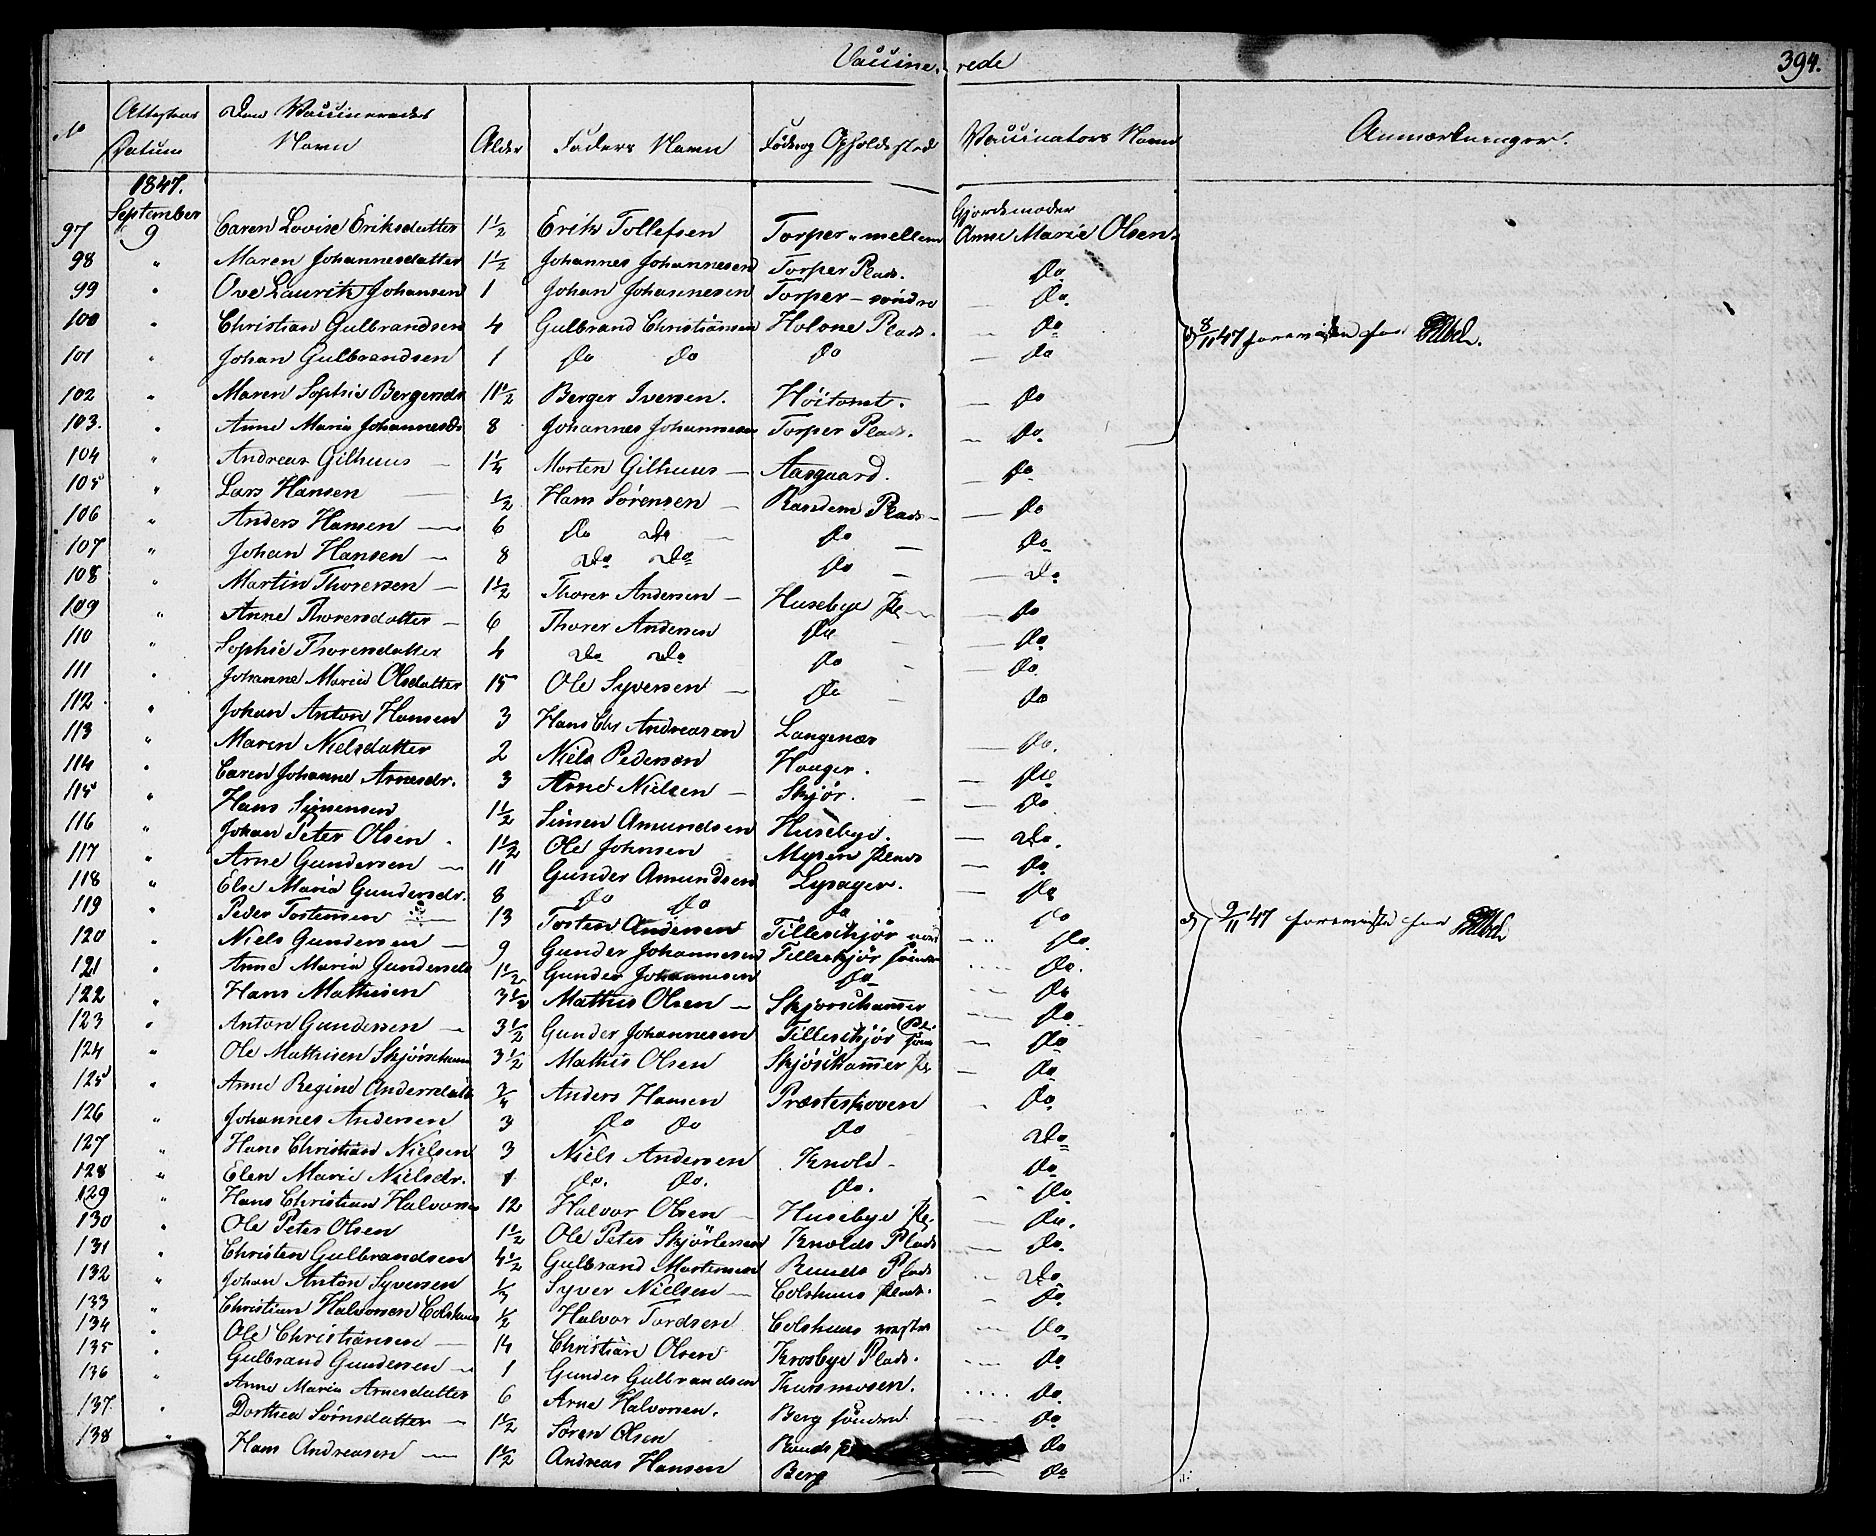 Vaccine- rede 394.
No Attestens Datum Den Vaccineredes Navn Alder Faders Navn Føde og Opholdssted Vaccinators Navn Anmærkninger.
1847.
September Gjordemoder
97 9 Caren Lovise Eriksdatter 1½ Erik Tollefsen Torper mellem Anne Marie Olsen.
98 " Maren Johannesdatter 1½ Johannes Johannesen Torper Plads. Do
99 " Ove Lauritz Johansen 1 Johan Johannesen Torper - søndre — Do.
100 " Christian Gulbrandsen 4 Gulbrand Christiansen Holone Plads. — Do
8/11 47
101 " Johan Gulbrandsen 1 Do Do Do — Do
102 " Maren Sophie Bergersdr 11½ Berger Iversen. Høitomt. — Do
103. " Anne Maria Johannesdr 8 Johannes Johannesen Torper Plads. — Do.
104 " Andreas Gilhuus — 1¼ Morten Gilhuus — Aasgaard. — Do.
105 " Lars Hansen — ½ Hans Sørensen — Randem Plads — Do
106 " Anders Hansen — 6 Do Do — Do — Do
107 " Johan Hansen — 8 Do Do Do — Do
108 " Martin Thorersen — 1½ Thorer Andersen — Husebye Pl — Do
109 " Anne Thorersdatter — 6 Thorer Andersen Do — Do
110 Sophie Thorersdatter 4 Do Do Do — Do
111 " Johanne Maria Olsdatter 15 Ole Syversen — Do — Do
112. " Johan Anton Hansen 3 Hans Chr Andreasen Langenæs — Do.
113 " Maren Nielsdatter 2 Niels Pedersen Hauger. — Do
114 " Caren Johanne Arnesdr. 3 Arne Nielsen — Skjør. — Do
115 " Hans Simensen 1½ Simen Amundsen Husebye. — Do.
116 " Johan Peter Olsen . 1½ Ole Johnsen Mysen Plads — Do
117 " Arne Gundersen — 11 Gunder Amundsen Lysager. — Do
118 " Else Maria Gundersdr. 8 Do Do Do Do
119 " Peder Tostensen — 13 Tosten Andersen Tilleskjør Do.
9/11 47
120 " Niels Gundersen — 9 Gunder Johannesen Tilleskjør søndre Do.
121 " Anne Maria Gundersdr 1½ Gunder Johannesen Do Do
122 " Hans Mathisen 3½ Mathis Olsen — Skjørshammer Do
123 " Anton Gundersen — 3½ Gunder Johannesen Tilleskjør søn — Do
124 " Ole Mathisen Skjørsham 3½ Mathis Olsen Skjørshammer Pl — Do
125 " Anne Regine Andersdatt ¾ Anders Hansen Præsteskoven Do
126 " Johannes Andersen 3 Do Do Do Do
127 " Hans Christian Nielsen 3 Niels Andersen Knold — Do
128 " Elen Marie Nielsdr. 1 Do. Do. Do. Do
129 " Hans Christian Halvorsen 12 Halvor Olsen — Husebye Pl. — Do.
130 " Ole Peter Olsen 1½ Ole Peter Skjørtersen Knolds Plads — Do.
131 " Christen Gulbrandsen 4½ Gulbrand Mortensen Runds Plads Do
132 " Johan Anton Syversen Syver Nielsen — Colshuus Plads. — Do.
133 " Christian Halvorsen Colshuus ½ Halvor Tordsen Colshuus vestre — Do
134 " Ole Christiansen — 14 Christian Olsen Krosbye Plads. Do
135 " Gulbrand Gundersen — 1 Gunder Gulbrandsen Do.
136 " Anne Maria Arnesdatter 6 Arne Halvorsen. Berg søndre. — Do
137. " Dorthea Sørnsdatter — 1½ Søren Olsen Runds Do
138 " Hans Andreasen — 1½ Andreas Hansen Berg — Do